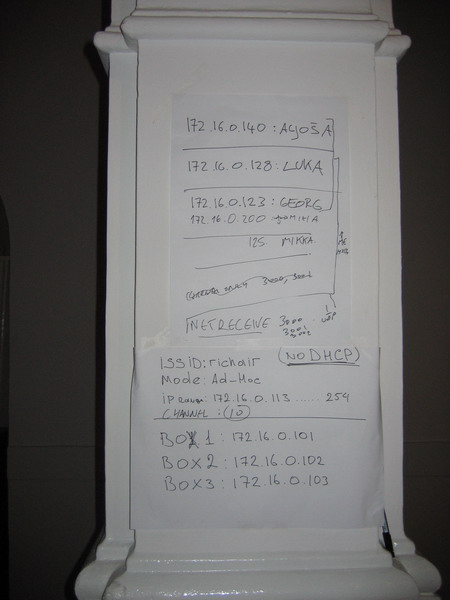 172.16.0.140 : ALJOŠA
172.16.0.128 : LUKA
172.16.0.123 : GEORG
172.16.0.200 MIHA
125 MIKKA
3000, 3001
NETRECEIVE 3000
3001
3002
1
UDP
ISSID: richair (NO DHCP)
Mode: Ad-Hoc
iP range: 172.16.0.113 ...... 254
CHANNEL: 10
BOX 1 : 172.16.0.101
BOX 2 : 172.16.0.102
BOX 3 : 172.16.0.103